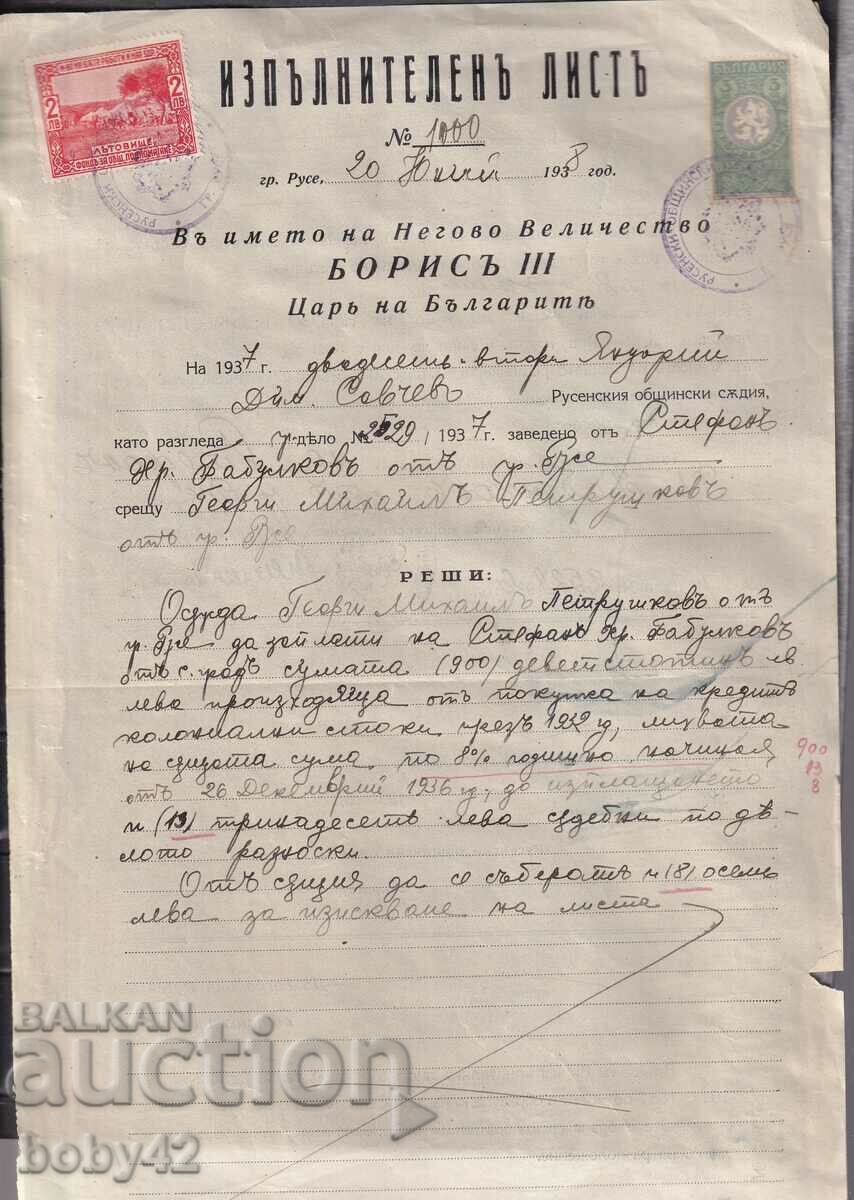 ИЗПЪЛНИТЕЛЕНЪ ЛИСТЪ
№ 1000
гр. Русе, 20 Юний 1938 год.
2 ЛВ
2 ЛВ
ЛѢТОВИЩЕ
ФОНДЪ ЗА ОБЩ. ПОДПОМАГАНЕ
БЪЛГАРИЯ
5
5
РУСЕНСКИ
РУСЕНСКИ ОБЩИНСКИ
Въ името на Негово Величество
БОРИСЪ III
Царь на Българитѣ
На 1937 г. двадесеть и втори Януарий
Дим. Савчевъ Русенския общински сѫдия,
като разгледа гр. дѣло № 29/1937 г. заведено отъ Стефанъ
Хр. Бабулковъ отъ гр. Русе
срещу Георги Михаилъ Петрушковъ
отъ гр. Русе
РЕШИ:
Осѫжда Георги Михаилъ Петрушковъ отъ
гр. Русе да заплати на Стефанъ Хр. Бабулковъ
отъ с. градъ сумата (900) деветстотинъ лв
лева произходяща отъ покупка на кредитъ
колониални стоки презъ 1932 год., лихвата
на сѫщата сума по 8% годишно, начиная
отъ 26 Декемврий 1936 год., до изплащането
и (13) тринадесеть лева сѫдебни по дѣ-
лото разноски.
Отъ сѫщия да се събератъ и (8) осемь
лева за изискване на листа
900
13
8
BALKAN
auction
boby42